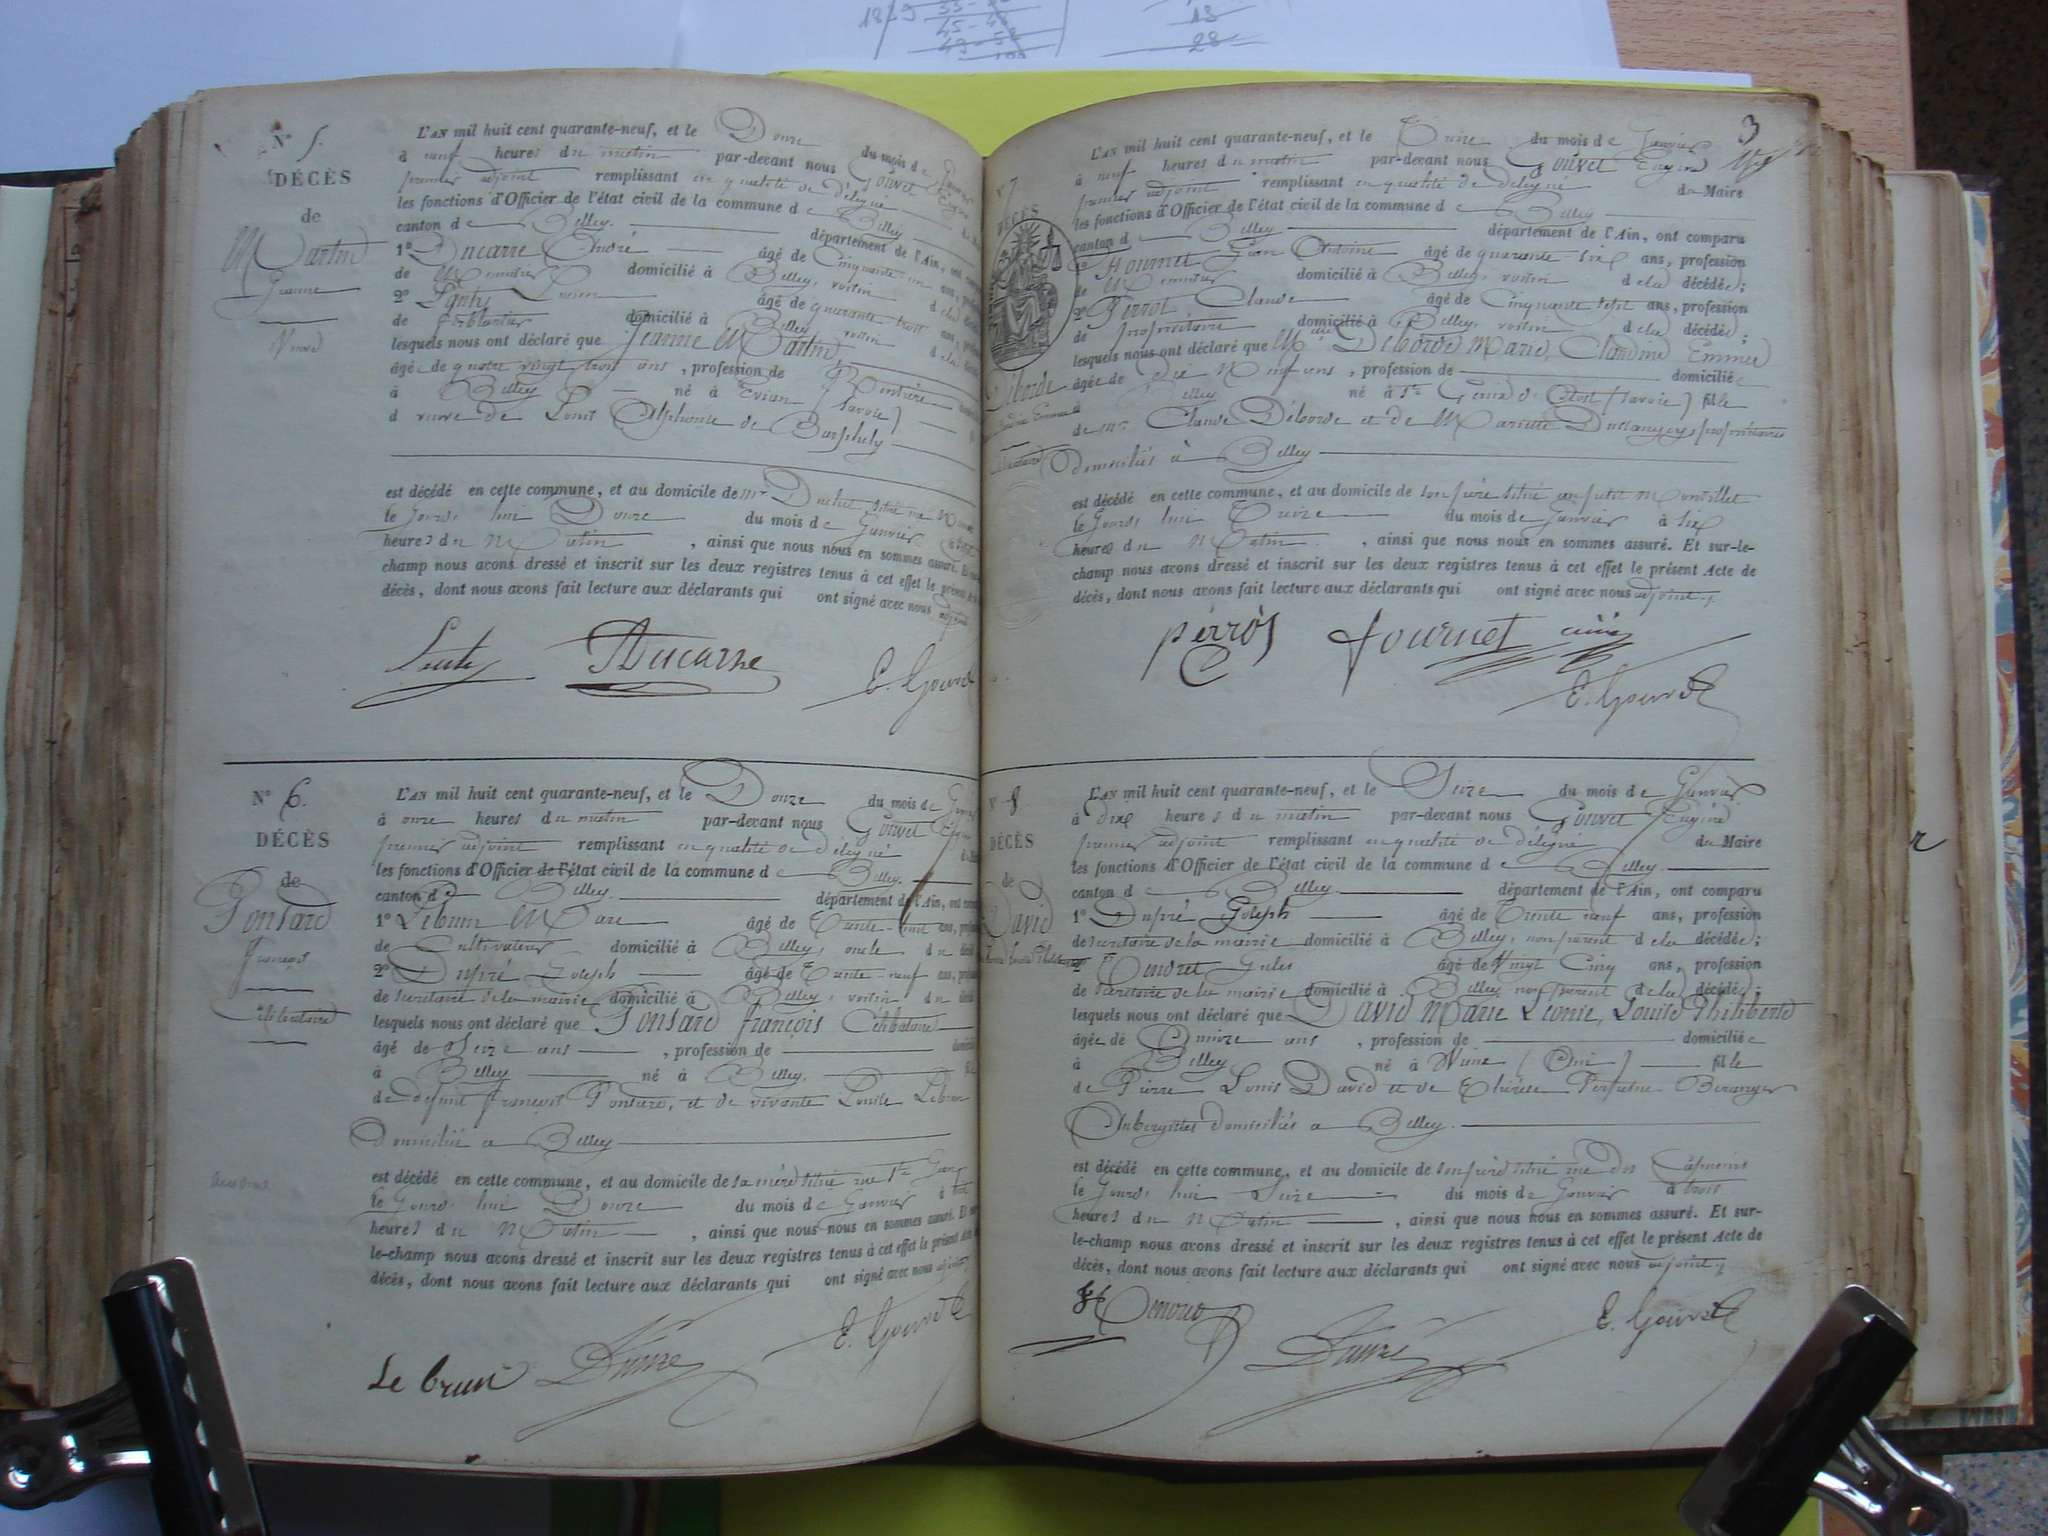 N° 5.
DÉCÈS
de
Martin
Jeanne
Veuve
L'AN mil huit cent quarante-neuf, et le Douze du mois de Janvier
à neuf heures du matin par-devant nous Gouvet Eugène
premier adjoint remplissant en qualité de délégué
les fonctions d'Officier de l'état civil de la commune d e Belley
canton d e Belley. département de l'Ain, ont
1° Ducarre André âgé de Cinquante-un ans,
de Menuisier domicilié à Belley, voisin d e la
2° âgé de quarante trois ans,
de ferblantier domicilié à Belley voisin d e la
lesquels nous ont déclaré que Jeanne Martin
âgée de quatre vingt trois ans, profession de Rentière
à Belley né à Evian (Savoie)
d veuve de Louis Alphonse de
est décédé en cette commune, et au domicile de Mr situé rue
le Jourd'hui Douze du mois de Janvier
heures du Matin, ainsi que nous nous en sommes assuré. Et
champ nous avons dressé et inscrit sur les deux registres tenus à cet effet le présent
décès, dont nous avons fait lecture aux déclarants qui ont signé avec nous adjoint
Ducarre
E. Gouvet
N° 6.
DÉCÈS
de
Ponsard
françois
Célibataire
L'AN mil huit cent quarante-neuf, et le Douze du mois de
à onze heures du matin par-devant nous Gouvet
premier adjoint remplissant en qualité de délégué
les fonctions d'Officier de l'état civil de la commune d e Belley.
canton d e Belley. département de l'Ain, ont
1° Lebrun Marc âgé de Trente-huit ans,
de Cultivateur domicilié à Belley, oncle du
2° Dupré Joseph âgé de Trente-neuf ans,
de secrétaire de la mairie domicilié à Belley, voisin du
lesquels nous ont déclaré que Ponsard françois Célibataire
âgé de Seize ans, profession de
à Belley né à Belley.
de défunt françois Ponsard, et de vivante Louise Lebrun
Domiciliée à Belley
est décédé en cette commune, et au domicile de sa mère située rue St Jean
le Jourd'hui Douze du mois de Janvier à
heures du Matin, ainsi que nous nous en sommes assuré. Et
le-champ nous avons dressé et inscrit sur les deux registres tenus à cet effet le présent
décès, dont nous avons fait lecture aux déclarants qui ont signé avec nous adjoint
Le brun Dupré E. Gouvet
3
N° 7
DÉCÈS
Déborde
L'AN mil huit cent quarante-neuf, et le Treize du mois de Janvier
à neuf heures du matin par-devant nous Gouvet Eugène
premier adjoint remplissant en qualité de délégué du Maire
les fonctions d'Officier de l'état civil de la commune d e Belley
canton d e Belley département de l'Ain, ont comparu
1° fournet Jean Antoine âgé de quarante-six ans, profession
de Menuisier domicilié à Belley, voisin d e la décédée;
2° Perrot Claude âgé de Cinquante sept ans, profession
de propriétaire domicilié à Belley, voisin d e la décédée;
lesquels nous ont déclaré que Melle Déborde Marie, Claudine Emma
âgée de dix Neuf ans, profession de domiciliée
Belley né à St Genix d' (Savoie) fille
de Mr Claude Déborde et de Mariette propriétaires
Domiciliés à Belley
est décédé en cette commune, et au domicile de son père situé au petit
le Jourd'hui Treize du mois de Janvier à six
heures du Matin, ainsi que nous nous en sommes assuré. Et sur-le-
champ nous avons dressé et inscrit sur les deux registres tenus à cet effet le présent Acte de
décès, dont nous avons fait lecture aux déclarants qui ont signé avec nous adjoint
perrot fournet
E. Gouvet
N° 8
DÉCÈS
de
David
L'AN mil huit cent quarante-neuf, et le Seize du mois de Janvier
à Dix heures du matin par-devant nous Gouvet Eugène
premier adjoint remplissant en qualité de délégué du Maire
les fonctions d'Officier de l'état civil de la commune d e Belley.
canton d e Belley. département de l'Ain, ont comparu
1° Dupré Joseph âgé de Trente neuf ans, profession
de secrétaire de la mairie domicilié à Belley, non parent d e la décédée;
2° Tendret Jules âgé de Vingt Cinq ans, profession
de secrétaire de la mairie domicilié à Belley non parent d e la décédée;
lesquels nous ont déclaré que David Marie Léonie, Louise Philiberte
âgée de Quinze ans, profession de domiciliée
à Belley né à (Ain) fille
de Pierre Louis David et de Thérèse Béranger
Aubergistes domiciliés à Belley.
est décédé en cette commune, et au domicile de son père situé rue des Capucins
le Jourd'hui Seize du mois de Janvier à trois
heures du Matin, ainsi que nous nous en sommes assuré. Et sur-
le-champ nous avons dressé et inscrit sur les deux registres tenus à cet effet le présent Acte de
décès, dont nous avons fait lecture aux déclarants qui ont signé avec nous adjoint
Tendret Dupré E. Gouvet